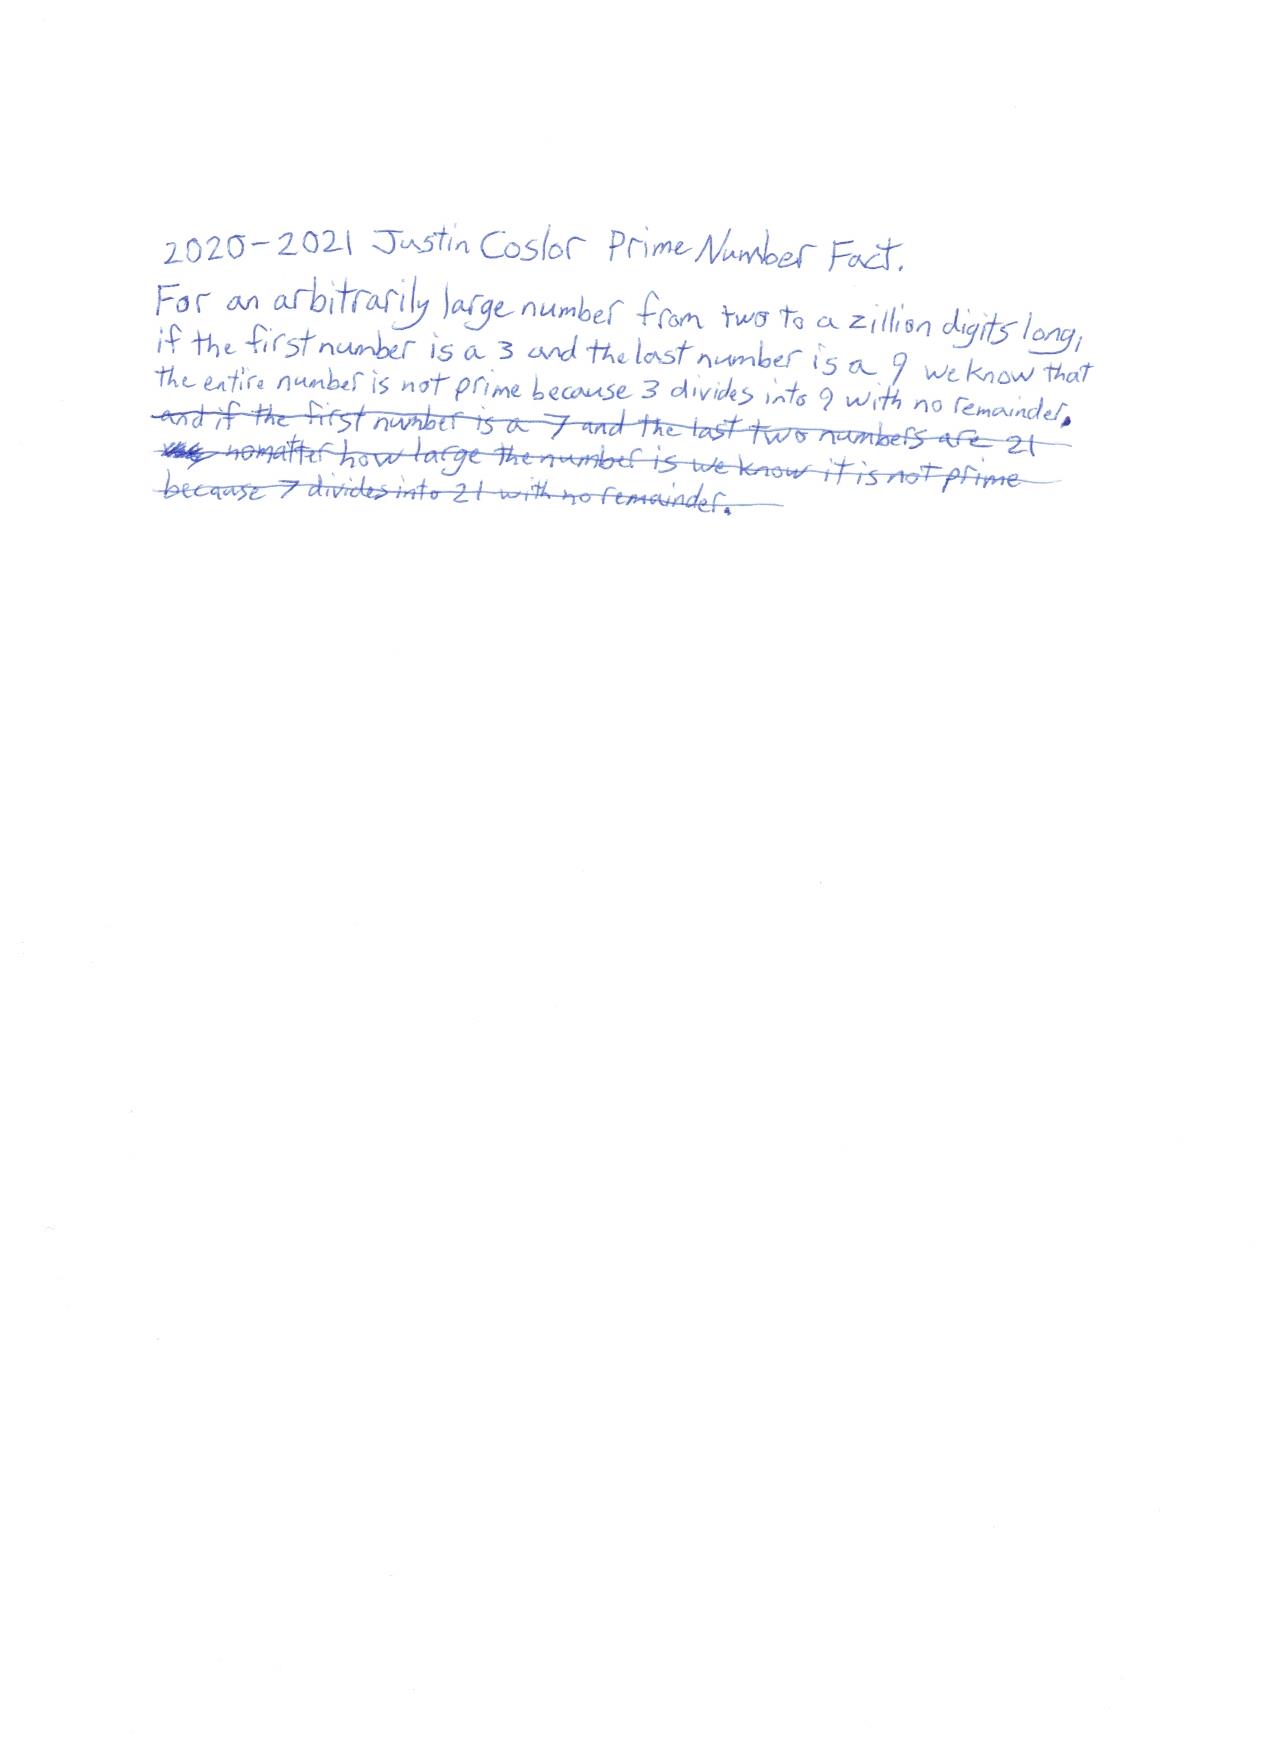 2020-2021 Justin Coslor Prime Number Fact.
For an arbitrarily large number from two to a zillion digits long,
if the first number is a 3 and the last number is a 9 we know that
the entire number is not prime because 3 divides into 9 with no remainder.
and if the first number is a 7 and the last two numbers are 21
nomatter how large the number is we know it is not prime
because 7 divides into 21 with no remainder.